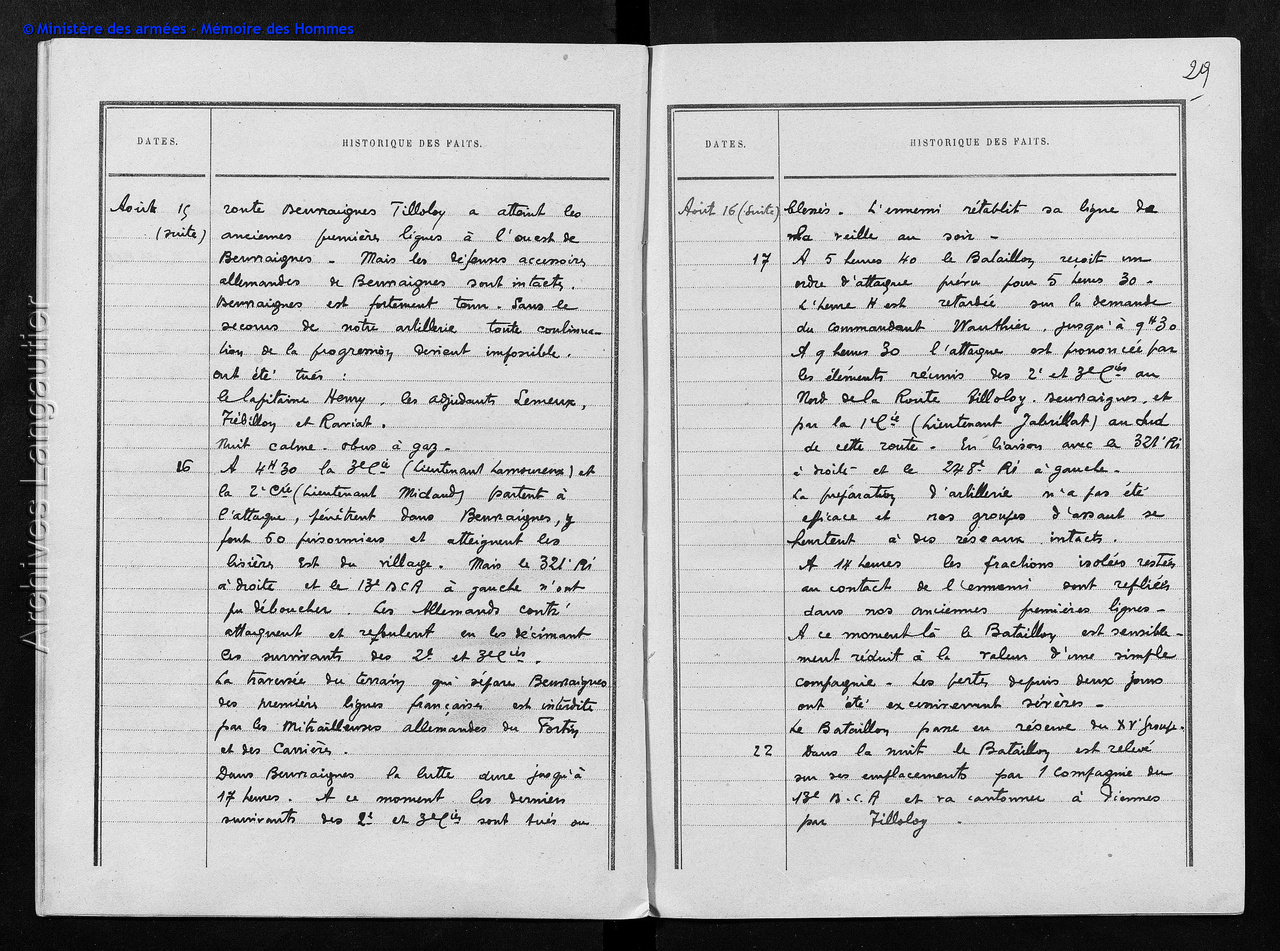 © Ministère des armées - Mémoire des Hommes
Archives Langautier
DATES. HISTORIQUE DES FAITS.
Août 15 route Beuvraignes Tilloloy a atteint les
(suite) anciennes premières lignes à l'ouest de
Beuvraignes - Mais les défenses accessoires
allemandes de Beuvraignes sont intactes.
Beuvraignes est fortement tenu. Sans le
secours de notre artillerie toute continua-
tion de la progression devient impossible.
ont été tués :
le Capitaine Henry, les adjudants Lemeux,
Frébillon et Raviat.
Nuit calme. obus à gaz.
16 A 4H30 la 3e Cie (Lieutenant Lamoureux) et
la 2e Cie (Lieutenant Michaud) partent à
l'attaque, pénètrent dans Beuvraignes, y
font 60 prisonniers et atteignent les
lisières Est du village. Mais le 321e RI
à droite et le 13e BCA à gauche n'ont
pu déboucher. Les Allemands contre
attaquent et refoulent en les décimant
les survivants des 2e et 3e Cies.
La traversée du terrain qui sépare Beuvraignes
des premières lignes françaises est interdite
par les Mitrailleuses allemandes du Fortin
et des Carrières.
Dans Beuvraignes la lutte dure jusqu'à
17 heures. A ce moment les derniers
survivants des 2e et 3e Cies sont tués ou
29
DATES. HISTORIQUE DES FAITS.
Août 16 (suite) blessés. L'ennemi rétablit sa ligne de
la veille au soir -
17 A 5 heures 40 le Bataillon reçoit un
ordre d'attaque prévu pour 5 heures 30 -
L'heure H est retardée sur la demande
du Commandant Wauthier, jusqu'à 9H30
A 9 heures 30 l'attaque est prononcée par
les éléments réunis des 2e et 3e Cies au
Nord de la Route Tilloloy. Beuvraignes, et
par la 1e Cie (Lieutenant Jabrillat) au Sud
de cette route - En liaison avec le 321e RI
à droite et le 248e RI à gauche -
La préparation d'artillerie n'a pas été
efficace et nos groupes d'assaut se
heurtent à des réseaux intacts.
A 14 heures les fractions isolées restées
au contact de l'ennemi sont repliées
dans nos anciennes premières lignes -
A ce moment là le Bataillon est sensible-
ment réduit à la valeur d'une simple
compagnie - Les pertes depuis deux jours
ont été excessivement sévères -
Le Bataillon passe en réserve du XVe Groupe.
22 Dans la nuit le Bataillon est relevé
sur ses emplacements par 1 Compagnie du
13e B.C.A et va cantonner à Piennes
par Tilloloy.